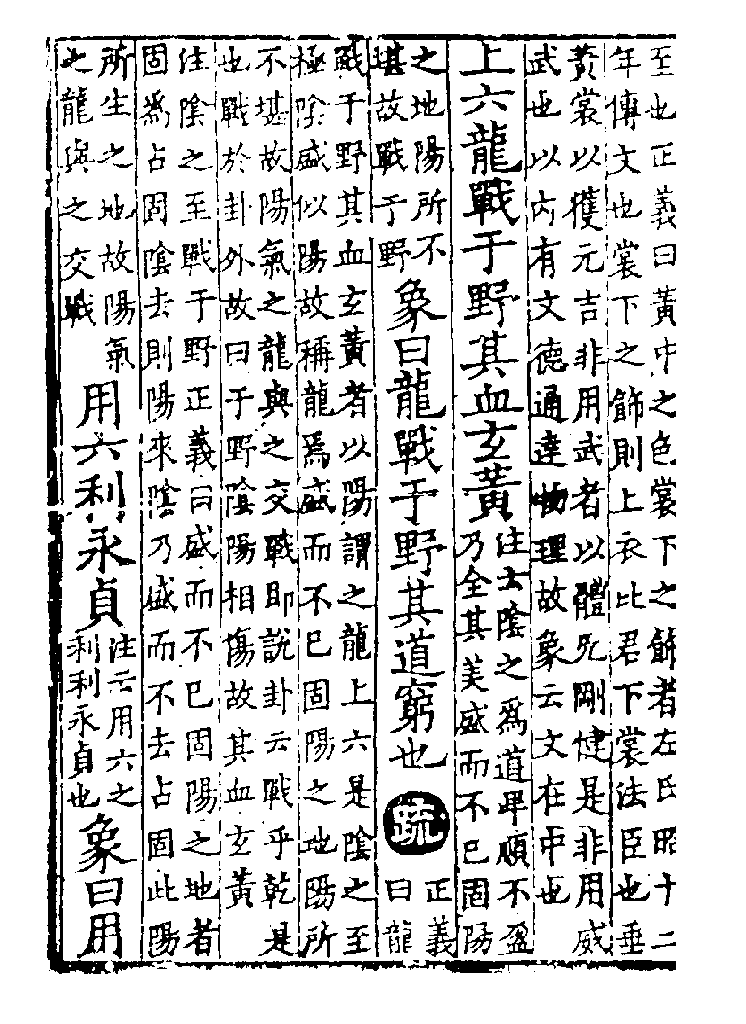 至也正義曰黃中之色裳下之飾者左氏昭十二
年傳文也裳下之飾則上衣比君下裳法臣也垂
黃裳以獲元吉非用武者以體无剛健是非用威
武也以内有文德通達物理故象云文在中也
上六龍戰于野其血玄黃
注云陰之爲道卑順不盈
乃全其美盛而不已固陽
之地陽所不
堪故戰于野
象曰龍戰于野其道窮也
疏
正義
曰龍
戰于野其血玄黃者以陽謂之龍上六是陰之至
極陰盛似陽故稱龍焉盛而不已固陽之地陽所
不堪故陽氣之龍與之交戰即說卦云戰乎乾是
也戰於卦外故曰于野陰陽相傷故其血玄黃
注陰之至戰于野正義曰盛而不已固陽之地者
固爲占固陰去則陽來陰乃盛而不去占固此陽
所生之地故陽氣
之龍與之交戰
用六利永貞
注云用六之
利利永貞也
象曰用